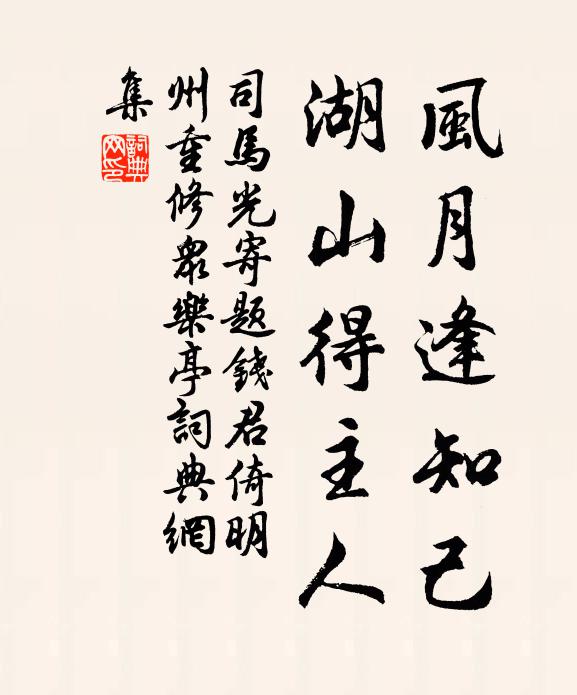 風月逢知己
湖山得主人
司馬光寄題錢君倚明
州重修眾樂亭詞典網
集
詞典
网印